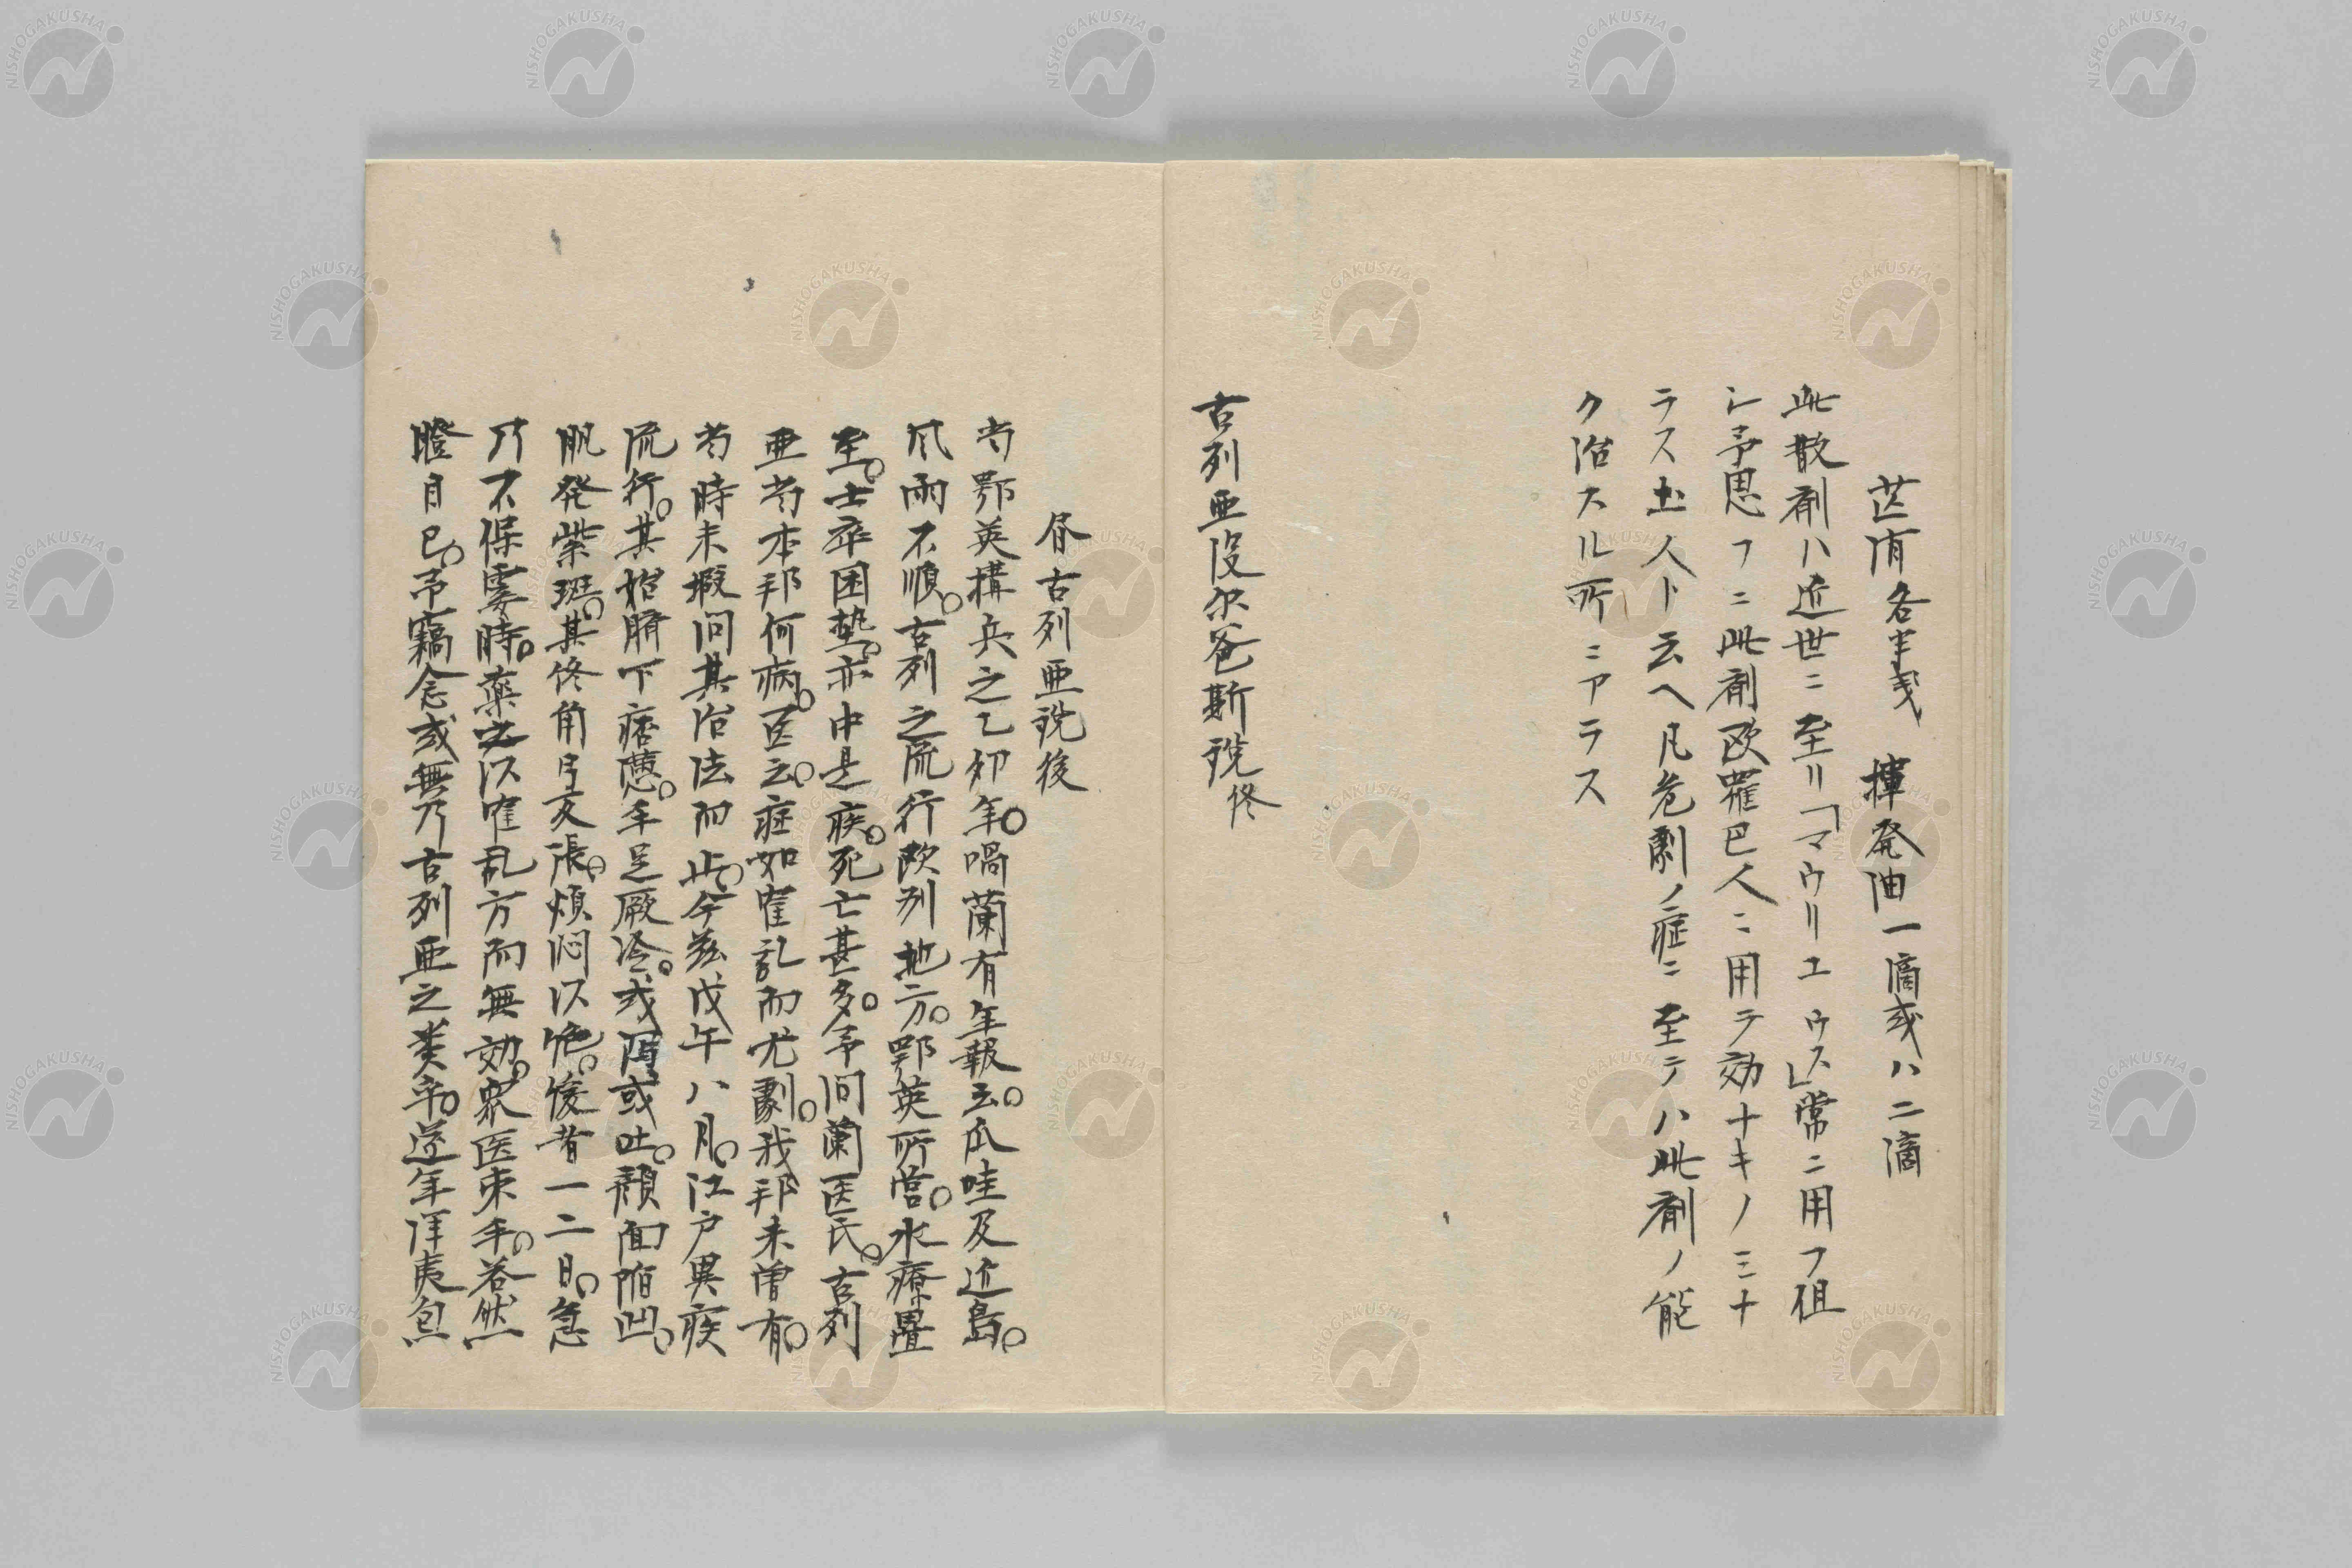 芷肯各半戋　揮発油一滴或ハ二滴
此散剤ハ近世ニ至リ「マウリエウス」常ニ用フ但
シ予思フニ此剤欧羅巴人ニ用テ効ナキノミナ
ラス土人ト云ヘ凡危劇ノ症ニ至テハ此剤ノ能
ク治スル所ニアラス
古列亜没尔爸斯説終
昼古列亜説後
当鄂英構兵之乙卯年。喎蘭有年報云。瓜哇及近島。
風雨不順。古列之流行欧列地方。鄂英所営。水療畳
至。士卒困墊。亦中是疾。死亡甚多。予問蘭医氏。古列
亜当本邦何病。医云。症如霍乱而尤劇。我邦未曽有。
当時未暇問其治法而止。今茲戊午八月。江戸異疾
流行。其始臍下痞懣。手足厥冷。或瀉或吐。顔面陥凹。
肌発紫斑。其終角弓反張。煩悶以絶。緩者一二日。急
乃不保霎時。薬之以霍乱方而無効。衆医束手。茖然
瞪目已。予竊念或無乃古列亜之類乎。送年洋夷包
NISHOGAKUSHA